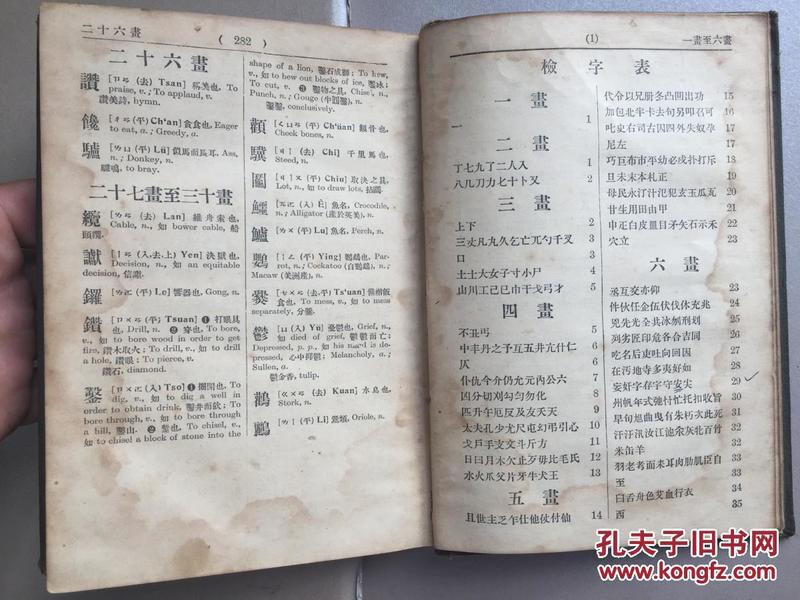 二十六畫
( 282 )
二十六畫
讚 [ㄗㄢ (去) Tsan] 稱美也, To
praise, v.; To applaud, v.
讚美詩, hymn.
饞 (平) Ch'an] 貪食也, Eager
to eat, a.; Greedy, a.
驢 (平) Lü] 似馬而長耳. Ass,
n.; Donkey, n.
驢鳴, to bray.
二十七畫至三十畫
纜 [ㄌㄢ (去) Lan] 維舟索也,
Cable, n., 如 bower cable, 船
讞 (入,去,上) Yen] 決獄也,
Decision, n., 如 an equitable
decision, 信讞.
鑼 (平) Lo] 響器也, Gong, n.
鑽 (平) Tsuan] ❶ 打眼具
也, Drill, n. ❷ 穿也, To bore,
v., 如 to bore wood in order to get
fire, 鑽木取火; To drill, v., 如 to drill
a hole, 鑽眼; To pierce, v.
鑽石, diamond.
鑿 (入) Tso] ❶ 掘開也, To
dig, v., 如 to dig a well in
order to obtain drink, 鑿井而飲; To
bore through, v., 如 to bore through
a hill, 鑿山. ❷ To chisel, v.,
如 to chisel a block of stone into the
shape of a lion, 鑿石成獅; To hew,
v., 如 to hew out blocks of ice, 鑿冰;
To cut, v. ❸ 鑿物之具, Chisel, n.,
Punch, n.; Gouge
conclusively.
顴 (平) Ch'üan] 頰骨也,
Cheek bones, n.
驥 (去) Chi] 千里馬也,
Steed, n.
鬮 (平) Chiu] 取決之具,
Lot, n., 如 to draw lots, 拈鬮.
鱷 Ê] 魚名, Crocodile,
n.; Alligator (產於美), n.
鱸 [ㄌㄨ (平) Lu] 魚名, Perch, n.
鸚 (平) Ying] 鸚鵡也, Par-
rot, n.; Cockatoo (白鸚鵡), n.;
Macaw (美洲產), n.
爨 Ts'uan]
也, To mess, v., 如 to mess
separately, 分爨.
鬱 [ㄩ (入) Yü] 憂鬱也, Grief, n.,
如 died of grief, 鬱鬱而亡;
Depressed, p. p., 如 his mind is de-
pressed, 心中抑鬱; Melancholy, a.;
Sullen, a.
鬱金香, tulip.
鸛 (去) Kuan] 水鳥也,
Stork, n.
鸝 [ㄌㄧ (平) Li] Oriole, n.
(1)
一畫至六畫
檢字表
一畫
一 1
二畫
丁七九了二人入 1
八几刀力匕十卜又 2
三畫
上下 2
三丈凡九久乞亡兀勺千叉 3
口 4
土士大女子寸小尸 4
山川工己巳巾干弋弓才 5
四畫
不丑丐 5
中丰丹之予互五井亢什仁 6
仄
仆仇今介仍允元內公六 7
凶分切刈勾勿化 8
匹升午厄反及友天夭 9
太夫孔少尤尺屯幻弔引心 10
戈戶手支文斗斤方 11
日曰月木欠止歹毋比毛氏 12
水火爪父片牙牛犬王 13
五畫
且世主乏乍仕他仗付仙 14
代令以兄册冬凸凹出功 15
加包北半卡去句另叩召可 16
叱史右司古囚四外失奴孕 17
尼左 17
巧巨布市平幼必戌扑打斥 18
旦未末本札正 19
母民永汀汁氾犯玄玉瓜瓦 20
甘生用田由甲 21
申疋白皮皿目矛矢石示禾 22
穴立 23
六畫
丞互交亦仰 23
件伙任企伍伏伐休充兆 24
兇先光全共冰刎刑划 25
列劣匠印危各合吉同 26
吃名后吏吐向回因 27
在汚地寺多夷好如 28
妄奸字存宇守安尖 29
州帆年式弛忖忙托扣收旨 30
早旬旭曲曳有朱朽次此死 31
汗汙汛汝江池汆灰牝百竹 32
米缶羊 32
羽老考而耒耳肉肋肌臣自 33
至 33
臼舌舟色艾血行衣 34
西 35
孔夫子旧书网
www.kongfz.com